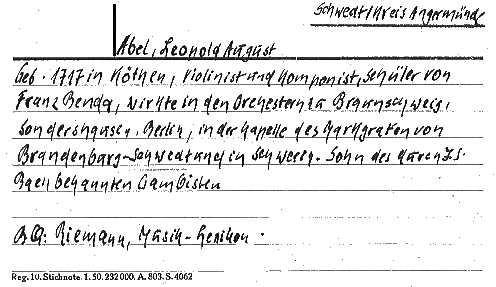 Schwedt/Kreis Angermünde
Abel, Leopold August
Geb. 1717 in Köthen, Violinist und Komponist, Schüler von
Franz Benda, wirkte in den Orchestern zu Braunschweig,
Sondershausen, Berlin, in der Kapelle des Markgrafen von
Brandenburg-Schwedt und in Schwerin. Sohn des durch J.S.
Bach bekannten Gambisten
Riemann, Musik-Lexikon.
Reg. 10. Stichnote. 1. 50. 232000. A. 803. S. 4062